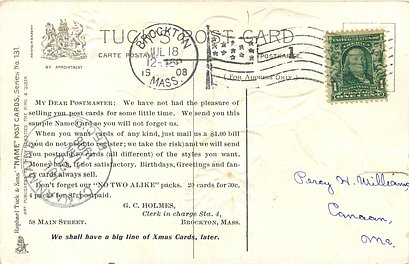 TUCK POST CARD
CARTE POSTALE
POSTKARTE.
(For Address Only)
BY APPOINTMENT
BROCKTON
JUL 18
1908
MASS.
1
Raphael Tuck & Sons' "NAME" POST CARDS, Series No. 131.
MY DEAR POSTMASTER: We have not had the pleasure of
selling you post cards for some little time. We send you this
sample Name Card so you will not forget us.
When you want cards of any kind, just mail us a $1.00 bill
(you do not need to register; we take the risk) and we will send
you post paid cards (all different) of the styles you want.
Money back if not satisfactory. Birthdays, Greetings and fan-
cy cards always sell.
Don't forget our "NO TWO ALIKE" packs. 25 cards for 30c,
4 packs for $1, postpaid.
G. C. HOLMES,
Clerk in charge Sta. 4,
58 MAIN STREET. BROCKTON, MASS.
We shall have a big line of Xmas Cards, later.
Percy H. Williams,
Canaan,
Me.